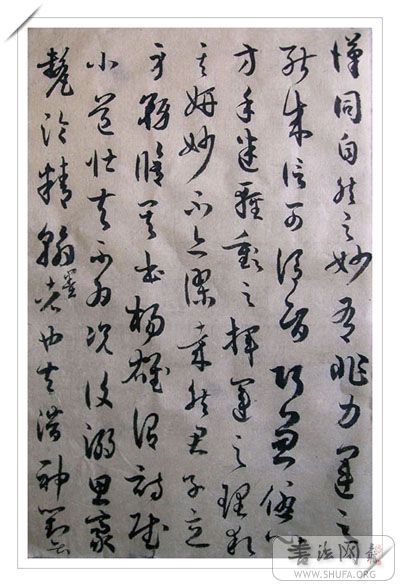 同自然之妙有非力運之
能成信可謂智巧兼優心
方手迷之揮運之理求
其妍妙不亦謬哉然君子立
身務脩其本楊雄謂詩賦
小道壯夫不為況復溺思豪
氂淪精翰墨者也夫潛神對
書法网
WWW.SHUFA.ORG